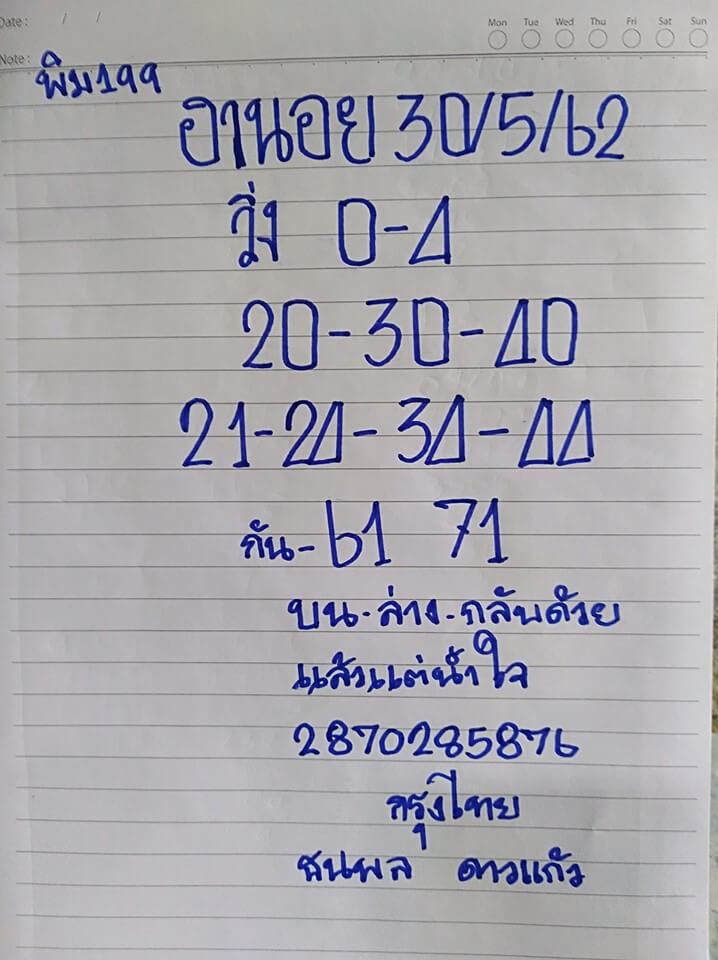 Date : / /
Mon Tue Wed Thu Fri Sat Sun
Note :
พิม199
ฮานอย 30/5/62
วิ่ง 0-4
20-30-40
21-24-34-44
กัน-61 71
บน-ล่าง-กลับด้วย
แล้วแต่น้ำใจ
2870285876
กรุงไทย
ธนพล ดาวแก้ว